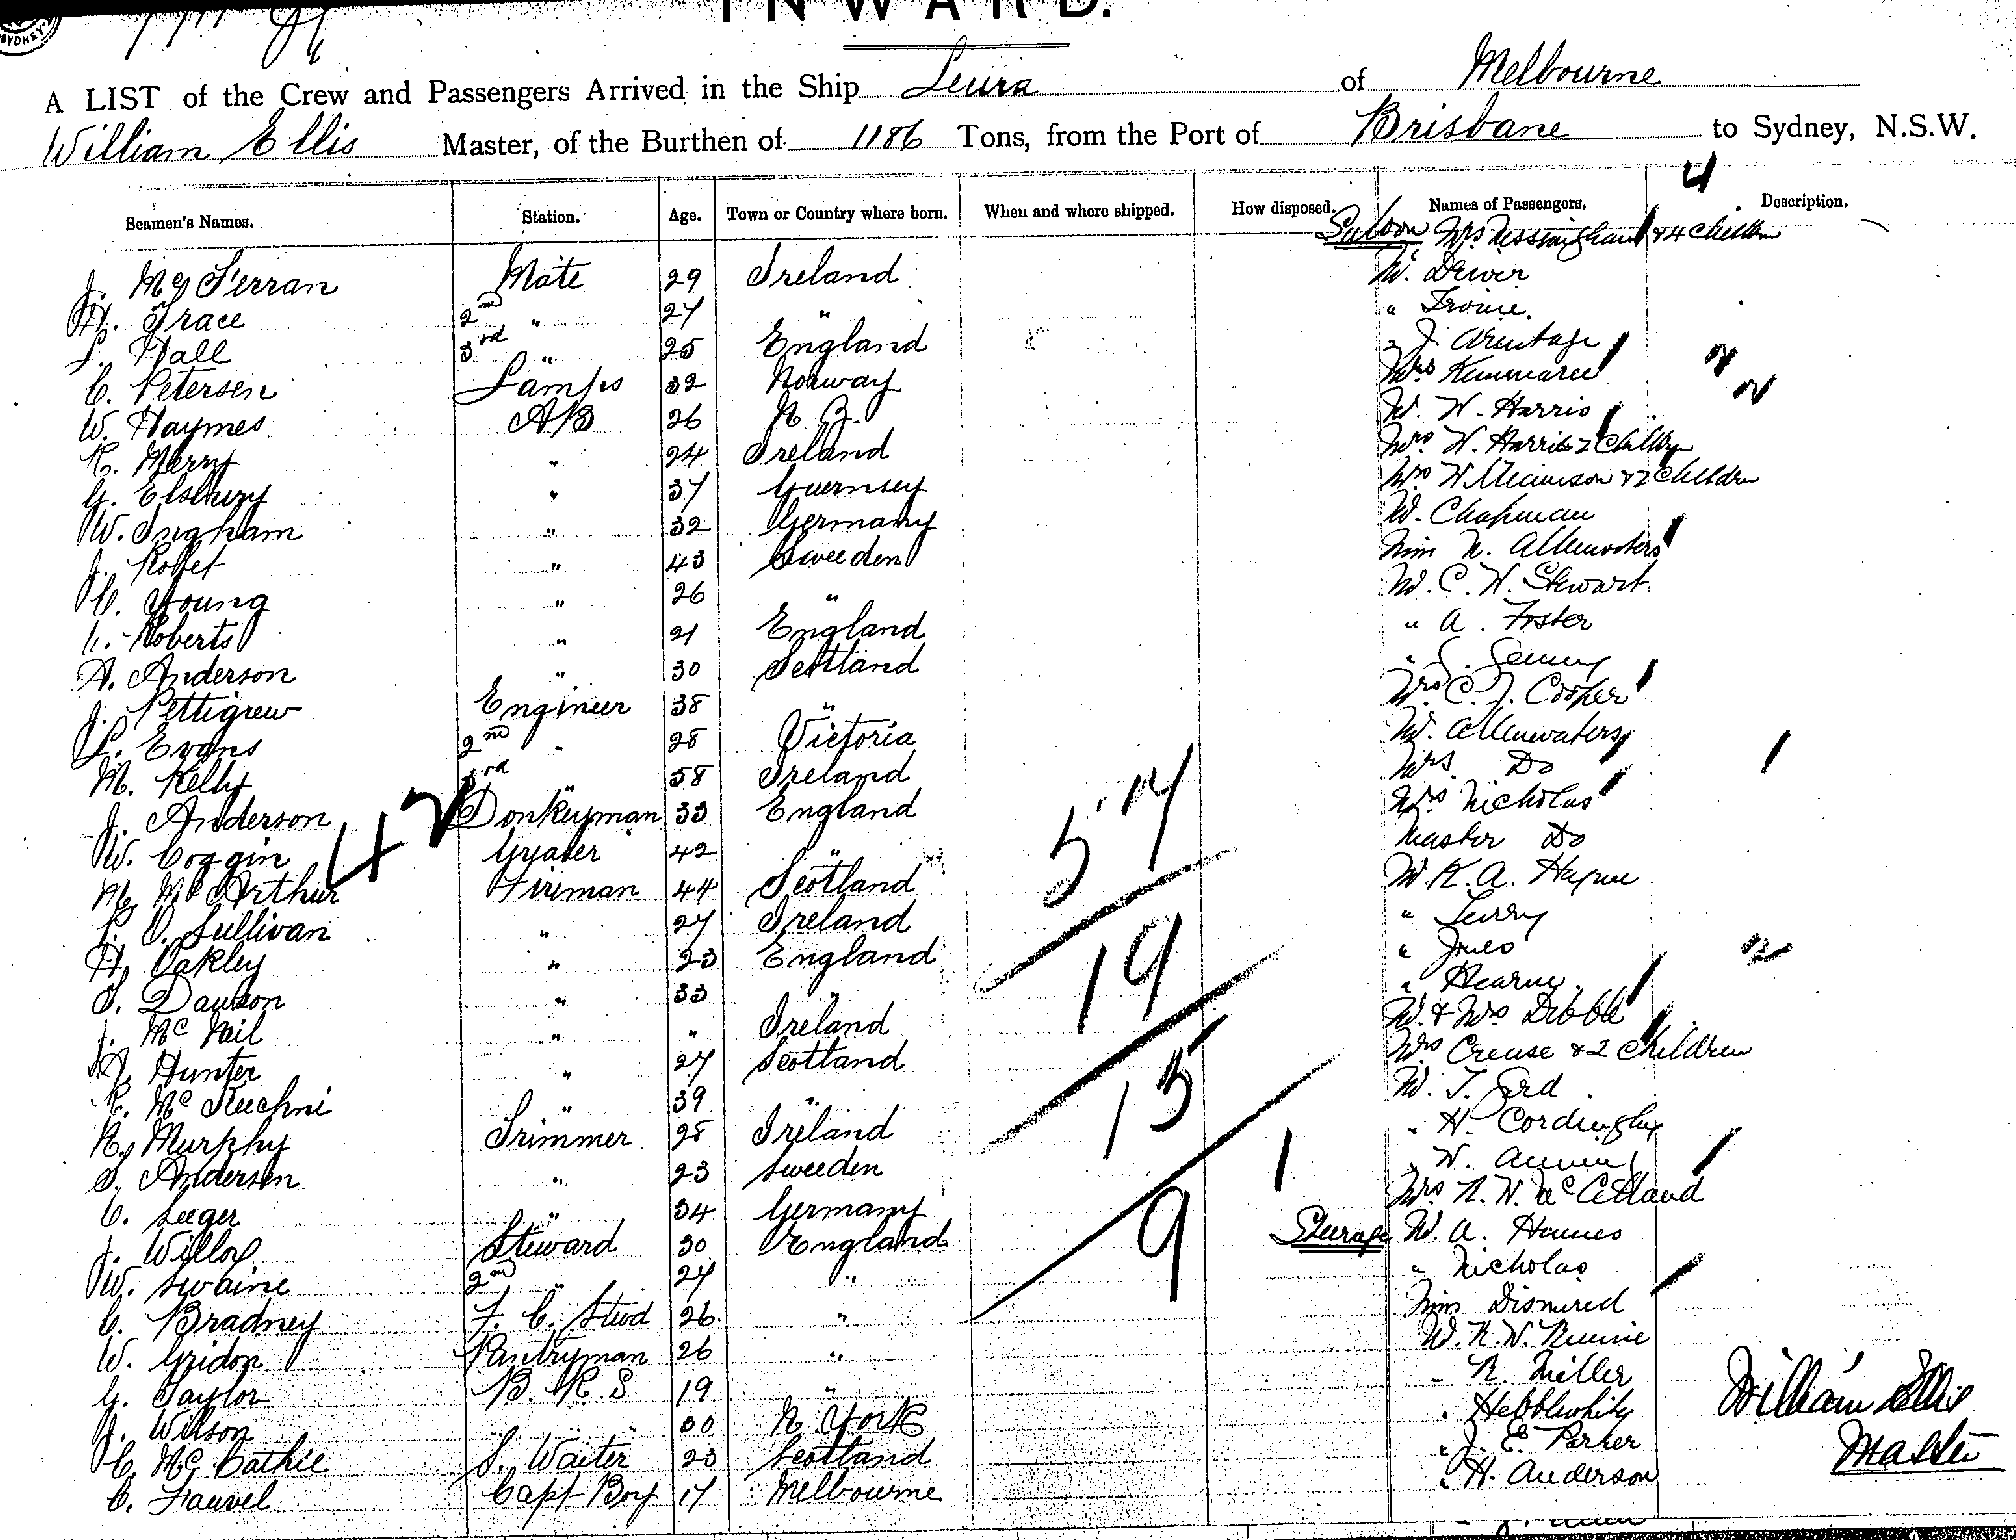 SYDNEY
INWARD.
A LIST of the Crew and Passengers Arrived in the Ship Leura of Melbourne
William Ellis Master, of the Burthen of 1186 Tons, from the Port of Brisbane to Sydney, N.S.W.
4
Seamen's Names. Station. Age. Town or Country where born. When and where shipped. How disposed. Names of Passengers. Description.
Saloon Mrs & 4 Children
J. Mate 29 Ireland M.
H. Grace 2nd " 27 " "
L. Hall 3rd " 25 England " J. Armitage
C. Petersen Lamps 32 Norway Mrs
W. Haymes AB 26 N. Z. M. W. Harris
R. Merry " 24 Ireland Mrs W. Harris 2 Children
G. Elsbury " 37 Guernsey Mrs Williamson & 2 Children
W. Ingham " 32 Germany M. Chapman
J. " 43 Sweeden Miss N. Allenwaters
C. Young " 26 " M. C. W. Stewart
Roberts " 21 England " A. Foster
A. Anderson " 30 Scotland "
J. Pettigrew Engineer 38 " Mrs Cooper
L. Evans 2nd " 28 Victoria M. Allenwaters
M. Kelly 3rd " 58 Ireland Mrs Do
J. Anderson 42 Donkeyman 33 England 57 Mrs Nicholas
W. Coggin Greaser 42 " Master Do
M. McArthur Fireman 44 Scotland M. K. A. Hayne
O'Sullivan " 27 Ireland " Terry
H. Oakley " 23 England 19 " Jones
S. Dawson " 33 " " Hearne
J. McNeil " " Ireland M. & Mrs Dibble
J. Hunter " 27 Scotland Mrs Crease & 2 Children
R. " 39 " 15 M. T. Ford
N. Murphy Trimmer 28 Ireland " H. Cordingley
S. Andersen " 23 Sweeden " W.
C. Seeger " 34 Germany Mrs
J. Steward 30 England 9 Steerage M. A. Haines
W. Swaine 2nd " 27 " " Nicholas
C. Bradney F. C. Stwd 26 " Miss
W. Gridon Pantryman 26 " M. N. W. Rennie
G. Taylor B. R. S 19 " " R. Miller
J. Wilson " 30 N. York " Hebblewhite William Ellis
C. McCathie S. Waiter 23 Scotland " J. E. Parker Master
C. Fauvel Capt Boy 17 Melbourne " H. Anderson